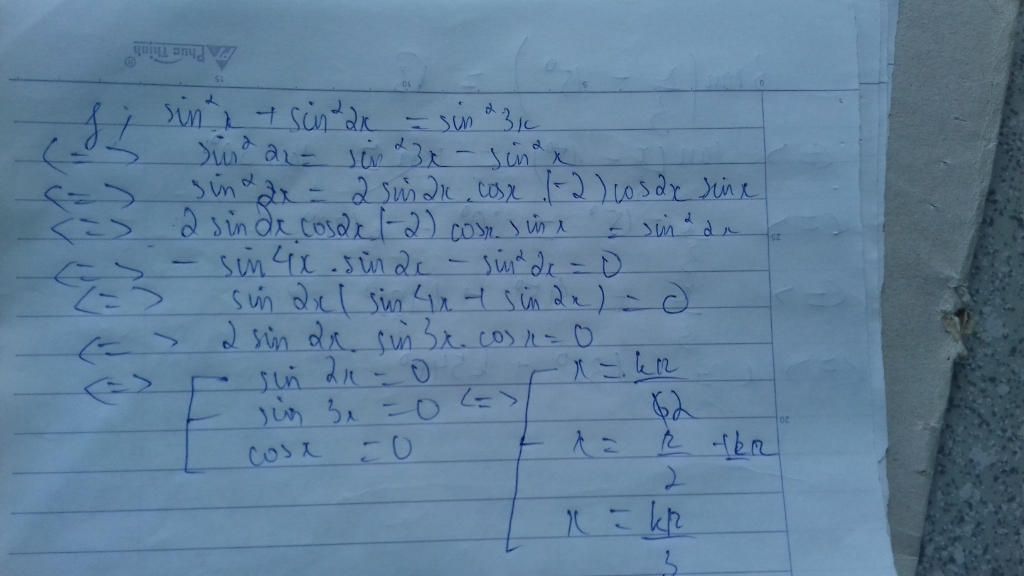 Phuc Thinh®
15 10 5 0
f; sin²x + sin²2x = sin²3x
<=> sin²2x = sin²3x - sin²x
<=> sin²2x = 2 sin2x . cosx . (-2) cos2x sinx
<=> 2 sin2x cos2x (-2) cosx sinx = sin²2x
25
<=> - sin4x . sin2x - sin²2x = 0
<=> sin 2x ( sin4x + sin 2x ) = 0
<=> 2 sin 2x . sin 3x . cosx = 0
<=> [ sin 2x = 0
sin 3x = 0
cosx = 0
<=> [ x = kπ/2
20
x = π/2 + kπ
x = kπ/3